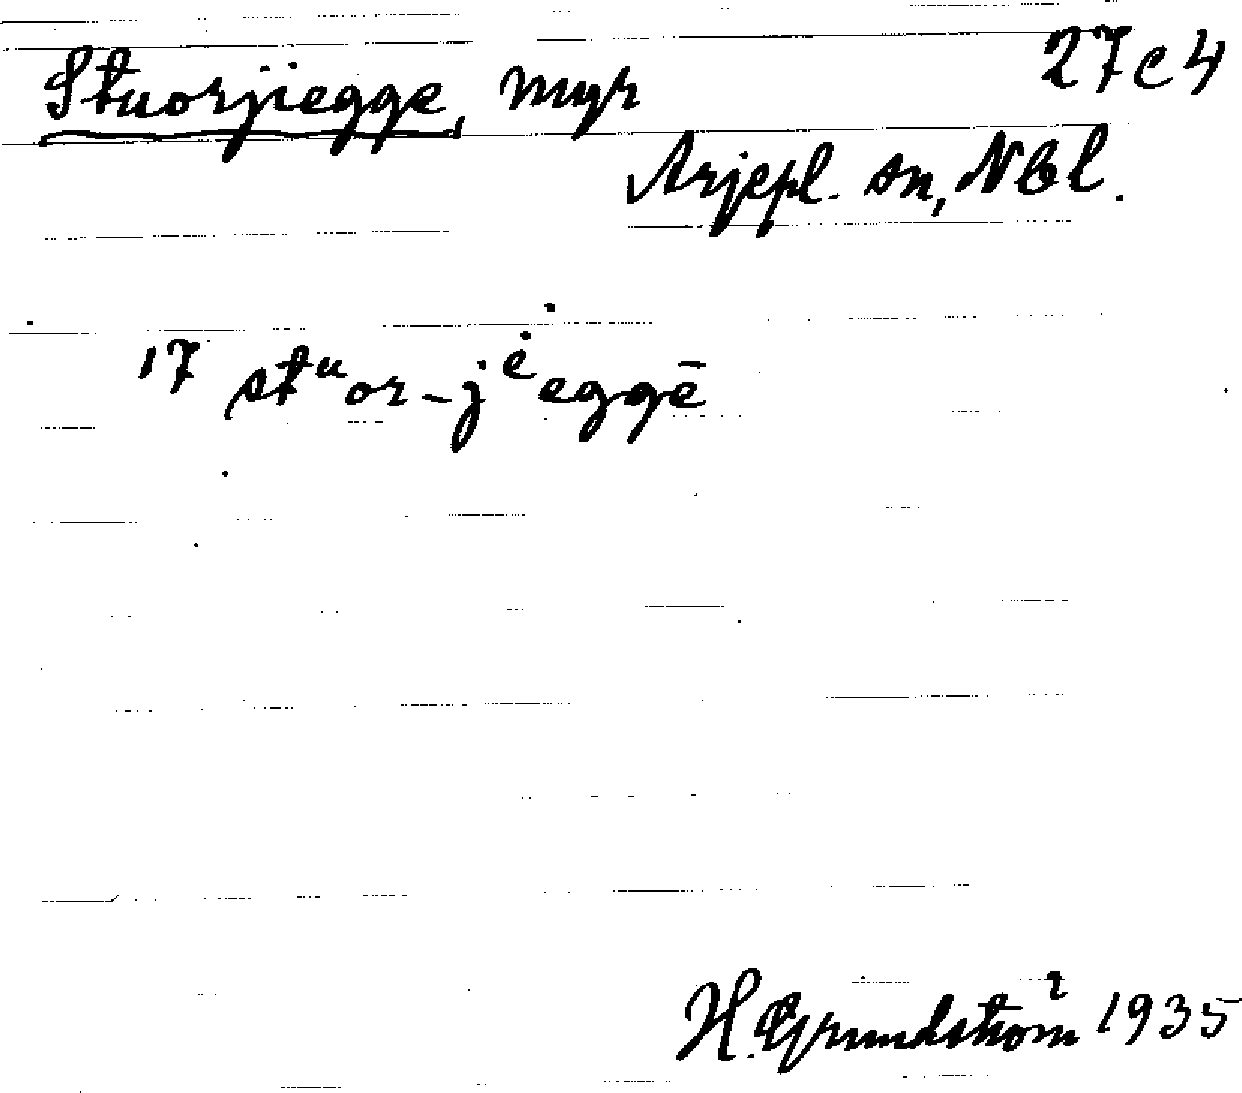 Stuorjiegge, myr 27c4
Arjepl. sn, Nbl.
17 stᵘor-jėeggē
H. Grundström 1935